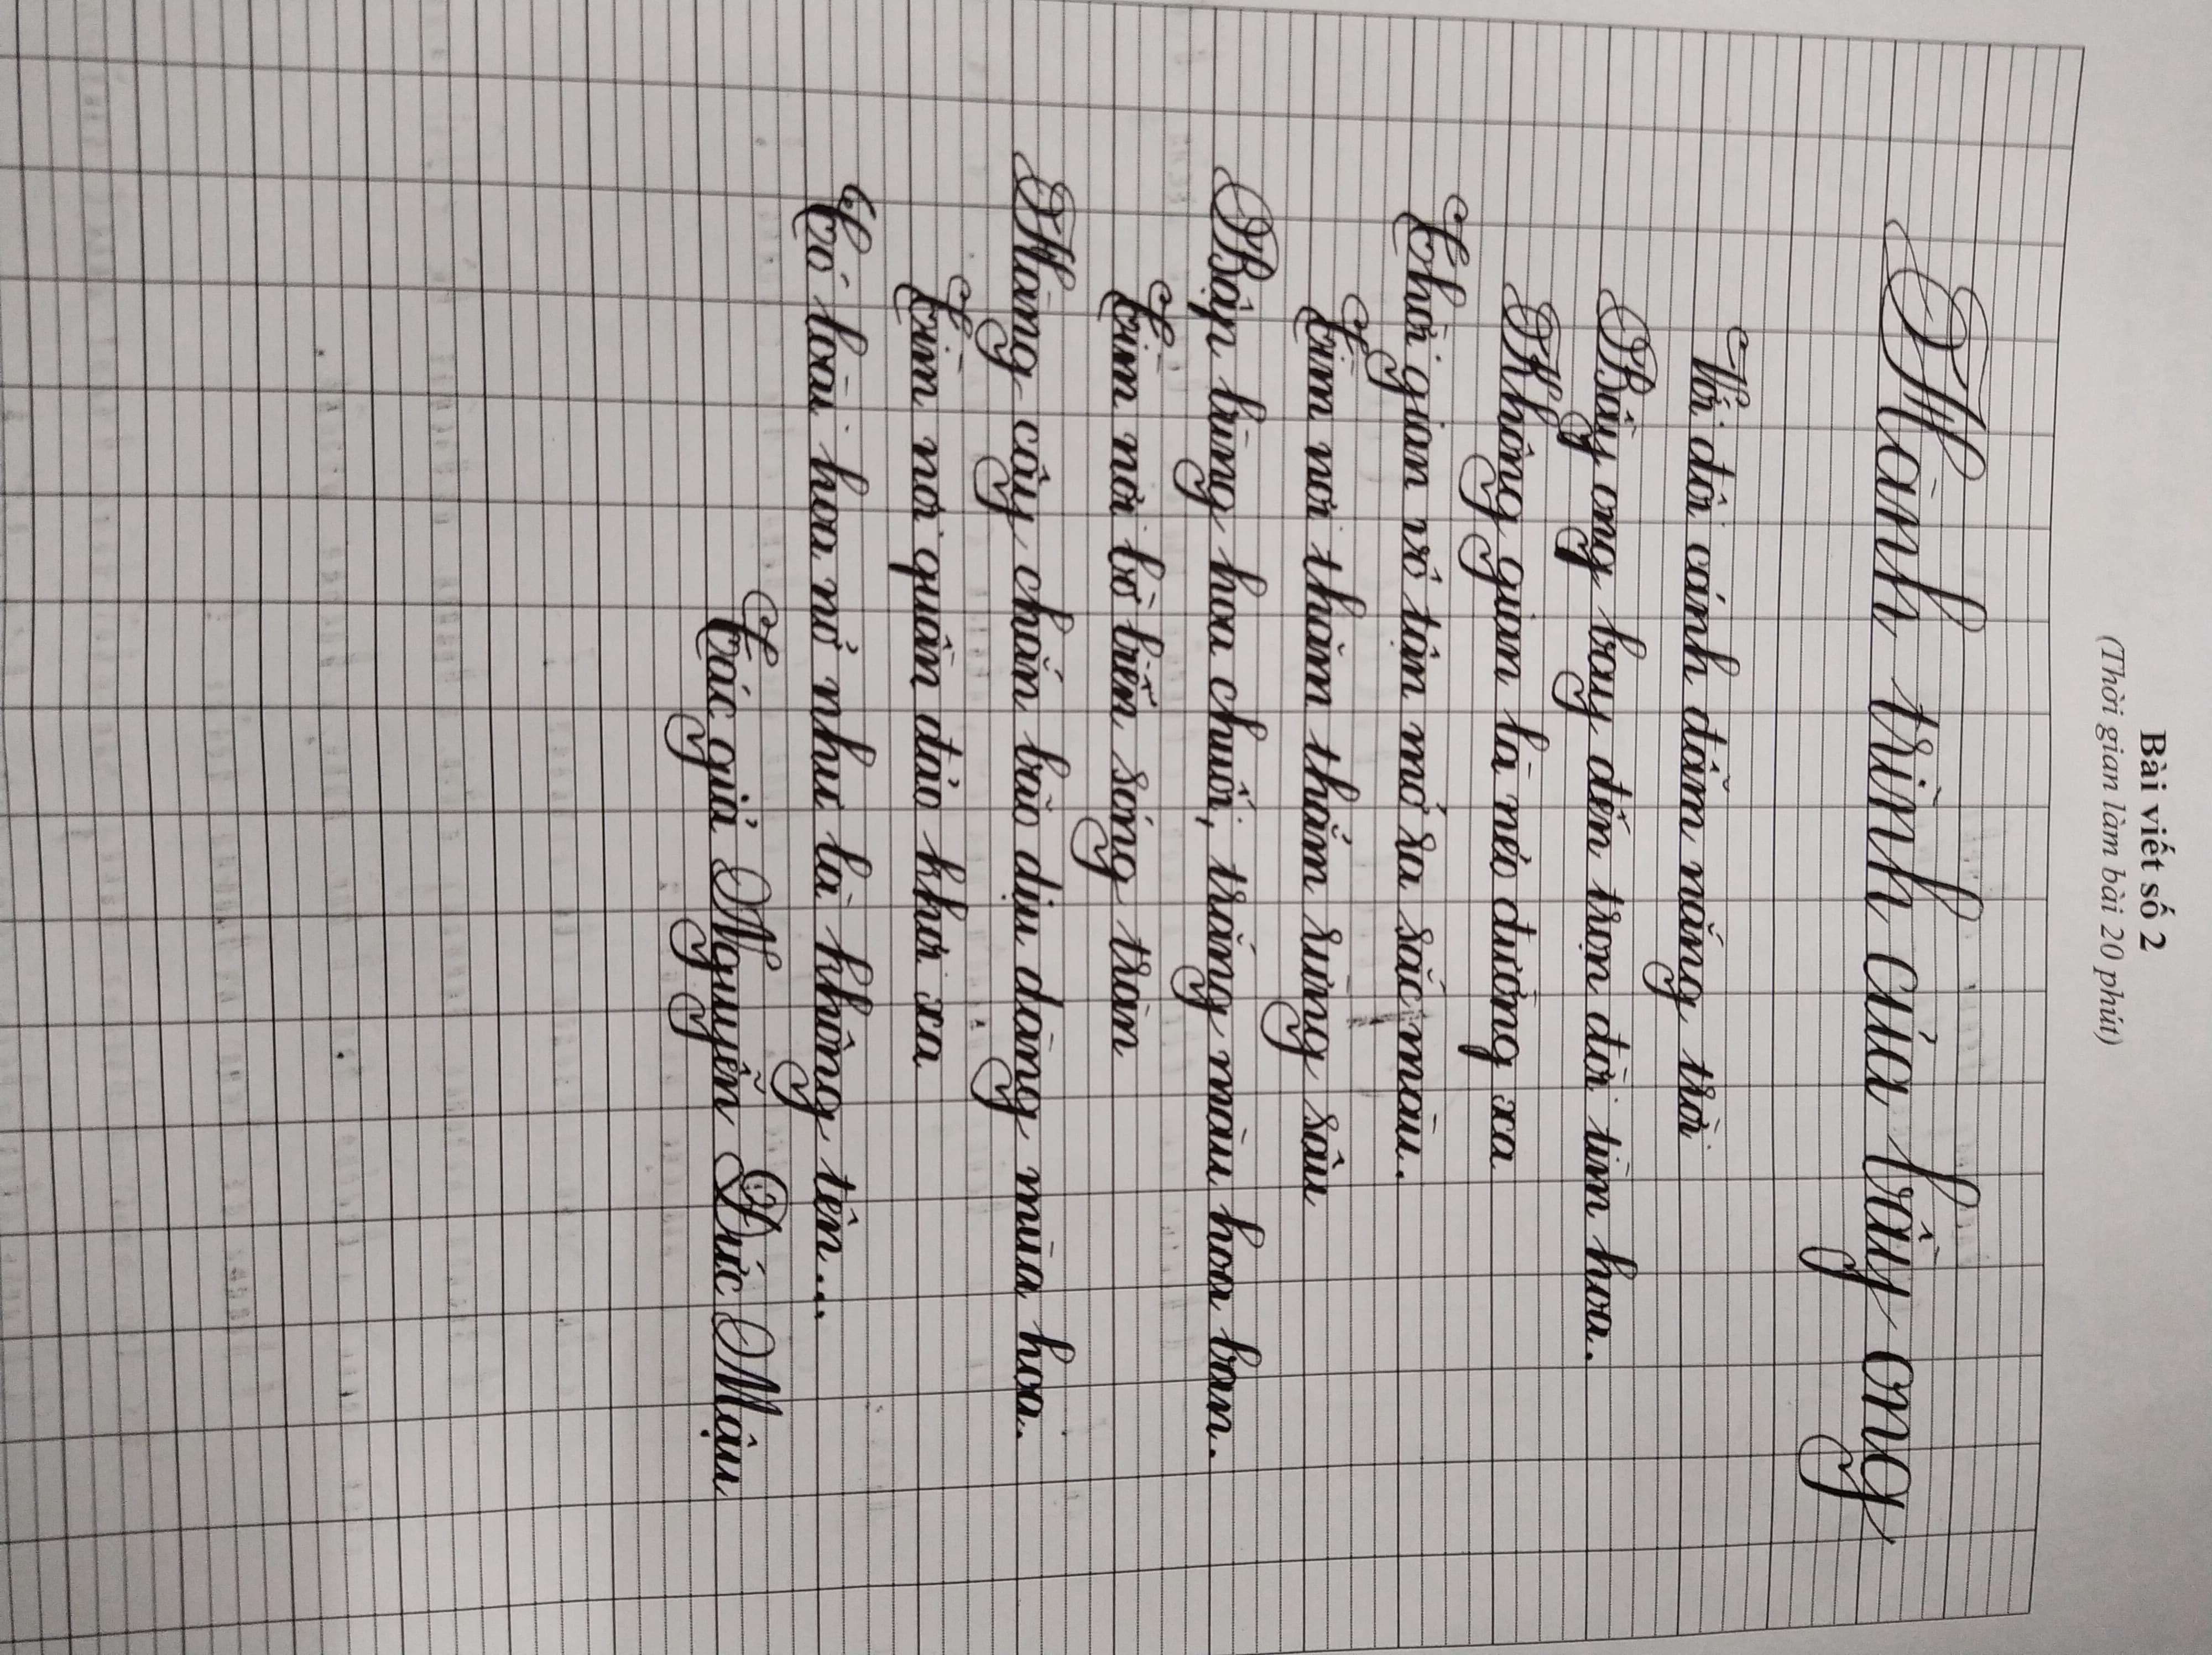 Bài viết số 2
(Thời gian làm bài 20 phút)
Hành trình của bầy ong
Với đôi cánh đẫm nắng trời
Bầy ong bay đến trọn đời tìm hoa.
Không gian là nẻo đường xa
Thời gian vô tận mở ra sắc màu.
Tìm nơi thăm thẳm rừng sâu
Bập bùng hoa chuối, trắng màu hoa ban.
Tìm nơi bờ biển sóng tràn
Hàng cây chắn bão dịu dàng mùa hoa.
Tìm nơi quần đảo khơi xa
Có loài hoa nở như là không tên...
Tác giả Nguyễn Đức Mậu